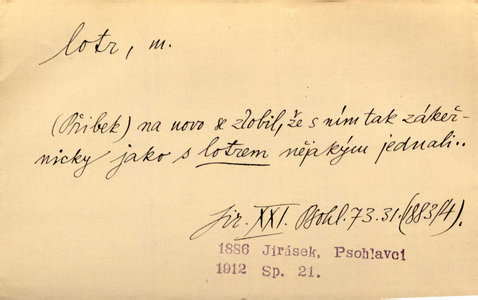 lotr, m.
(Přibek) na novo se zlobil, že s ním tak zákeř-
nicky jako s lotrem nějakým jednali..
Jir. XXI. Psohl. 73. 31. (883/4).
1886 Jirásek, Psohlavci
1912 Sp. 21.